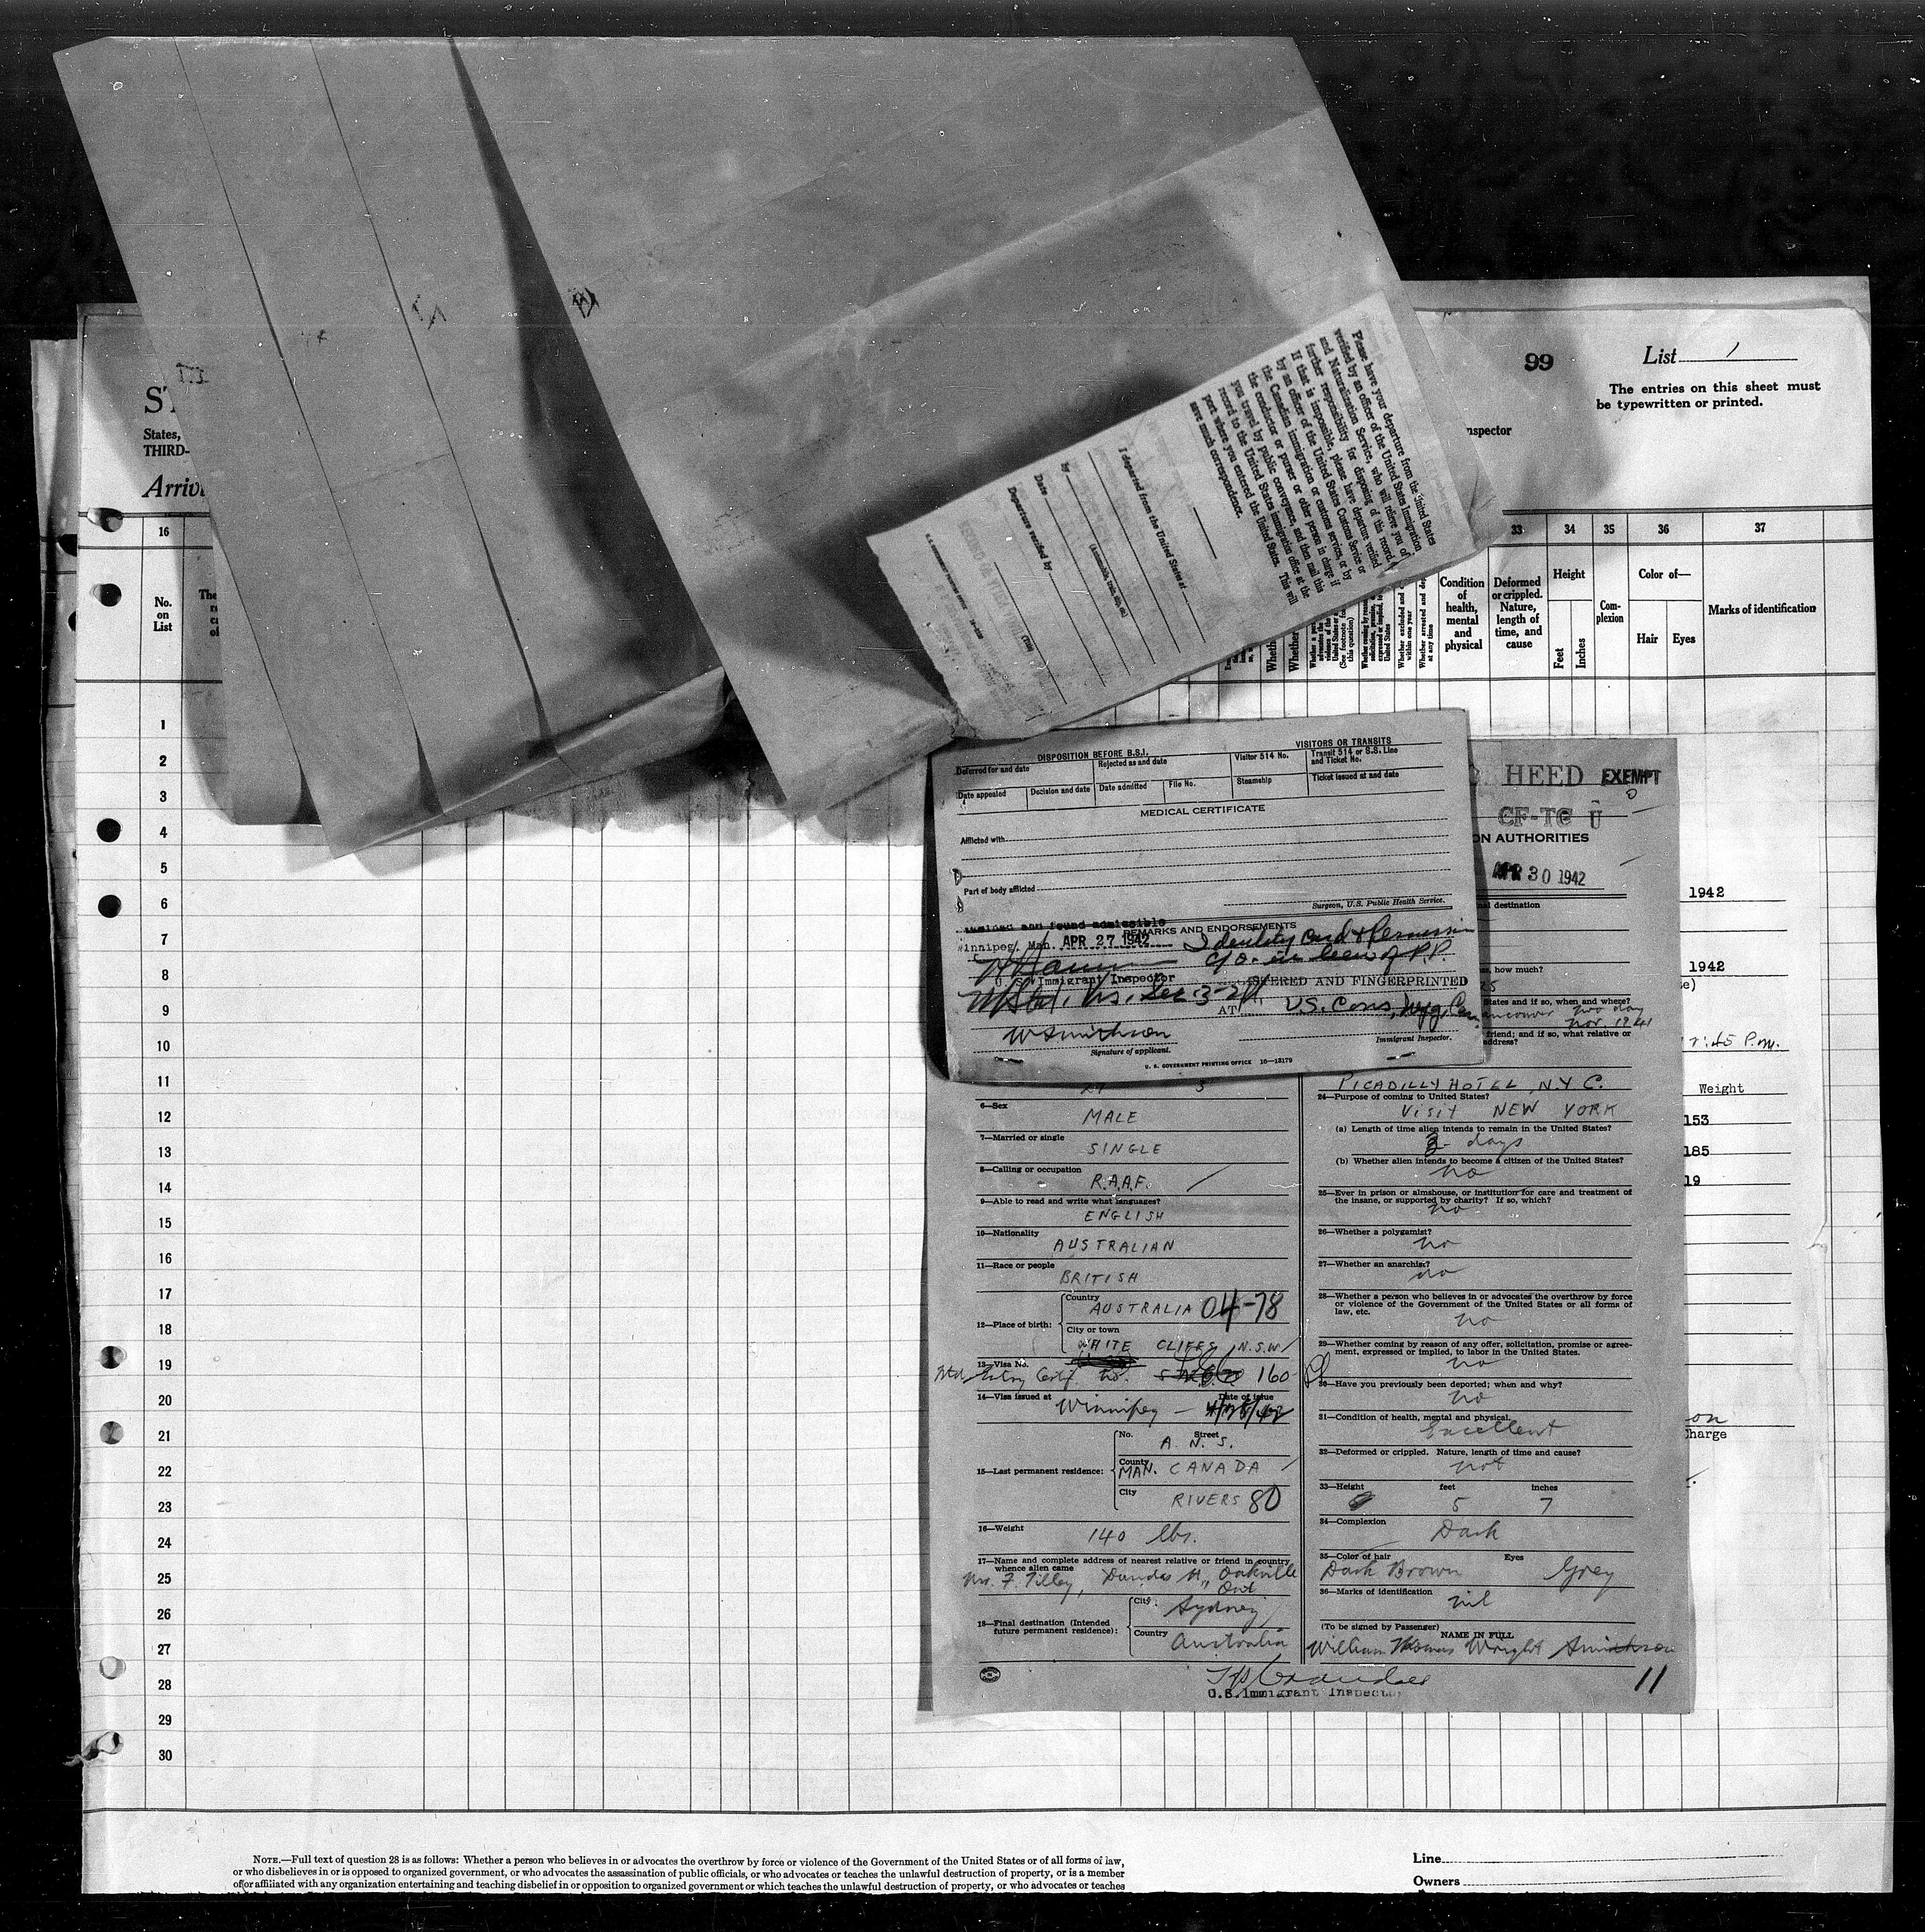 99
List 1
The entries on this sheet must
be typewritten or printed.
nspector
ST
States,
THIRD-
Arriv
16
33
34
35
36
37
No.
on
List
Condition
of
health,
mental
and
physical
Deformed
or crippled.
Nature,
length of
time, and
cause
Height
Feet
Inches
Com-
plexion
Color of—
Hair
Eyes
Marks of identification
Please have your departure from the United States
verified by an officer of the United States Immigration
and Naturalization Service, who will relieve you of
further responsibility for disposing of this record.
If that is impossible, please have departure verified
by an officer of the United States Customs Service or
the Canadian immigration or customs services, or by
the conductor or purser or other person in charge if
you travel by public conveyance, and then mail this
record to the United States immigration office at the
port where you entered the United States. This will
save much correspondence.
I departed from the United States at
by
(Automobile, train, ship, etc.)
Date
Departure verified by
(Title)
DISPOSITION BEFORE B.S.I.
VISITORS OR TRANSITS
Deferred for and date
Rejected as and date
Visitor 514 No.
Transit 514 or S.S. Line
and Ticket No.
Date appealed
Decision and date
Date admitted
File No.
Steamship
Ticket issued at and date
MEDICAL CERTIFICATE
Afflicted with
Part of body afflicted
Surgeon, U.S. Public Health Service.
and found admissible
REMARKS AND ENDORSEMENTS
innipeg, Man. APR 27 1942
Identity Card & Permission
c/o in lieu of P.P.
U. S. Immigrant Inspector
STERED AND FINGERPRINTED
AT U.S. Cons, Wpg, Can.
Signature of applicant.
Immigrant Inspector.
U. S. GOVERNMENT PRINTING OFFICE 16—13179
HEED EXEMPT
CF-TC U
ON AUTHORITIES
APR 30 1942
al destination
s, how much?
25
States and if so, when and where?
ancouver two day
Nov. 1941
friend; and if so, what relative or
address?
PICADILLY HOTEL, N.Y.C.
24—Purpose of coming to United States?
VISIT NEW YORK
(a) Length of time alien intends to remain in the United States?
3 days
(b) Whether alien intends to become a citizen of the United States?
no
25—Ever in prison or almshouse, or institution for care and treatment of
the insane, or supported by charity? If so, which?
no
26—Whether a polygamist?
no
27—Whether an anarchist?
no
28—Whether a person who believes in or advocates the overthrow by force
or violence of the Government of the United States or all forms of
law, etc.
no
29—Whether coming by reason of any offer, solicitation, promise or agree-
ment, expressed or implied, to labor in the United States.
no
30—Have you previously been deported; when and why?
no
31—Condition of health, mental and physical.
Excellent
32—Deformed or crippled. Nature, length of time and cause?
not
33—Height feet inches
5 7
34—Complexion
Dark
35—Color of hair Eyes
Dark Brown Grey
36—Marks of identification
nil
(To be signed by Passenger)
NAME IN FULL
William Thomas Wright
11
27 3
6—Sex
MALE
7—Married or single
SINGLE
8—Calling or occupation
R.A.A.F.
9—Able to read and write what languages?
ENGLISH
10—Nationality
AUSTRALIAN
11—Race or people
BRITISH
12—Place of birth:
Country
AUSTRALIA 04-78
City or town
WHITE CLIFFS N.S.W.
13—Visa No.
160
14—Visa issued at Date of issue
Winnipeg — 4/28/42
15—Last permanent residence:
No. Street
A. N. S.
County
MAN. CANADA
City
RIVERS 80
16—Weight
140 lbs.
17—Name and complete address of nearest relative or friend in country
whence alien came
Mrs. F. Tilley, Dundas St., Oakville
Ont
18—Final destination (Intended
future permanent residence):
City
Sydney
Country
Australia
U.S. Immigrant Inspector
1942
1942
7:45 P.m.
Weight
153
185
19
on
Charge
1
2
3
4
5
6
7
8
9
10
11
12
13
14
15
16
17
18
19
20
21
22
23
24
25
26
27
28
29
30
NOTE.—Full text of question 28 is as follows: Whether a person who believes in or advocates the overthrow by force or violence of the Government of the United States or of all forms of law,
or who disbelieves in or is opposed to organized government, or who advocates the assassination of public officials, or who advocates or teaches the unlawful destruction of property, or is a member
of or affiliated with any organization entertaining and teaching disbelief in or opposition to organized government or which teaches the unlawful destruction of property, or who advocates or teaches
Line
Owners